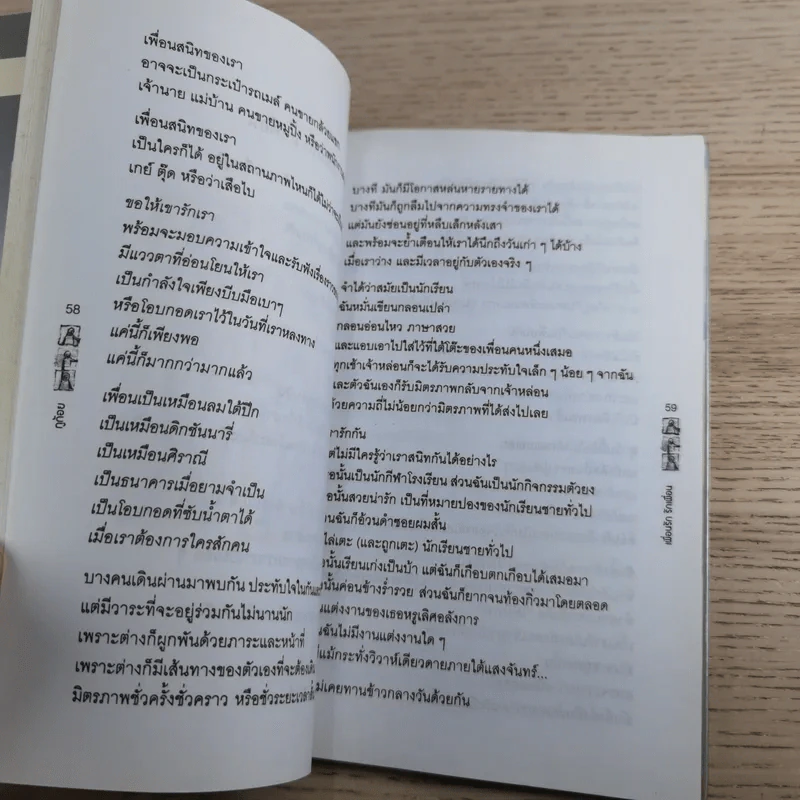 เพื่อนสนิทของเรา
อาจจะเป็นกระเป๋ารถเมล์ คนขายกล้วยแขก
เจ้านาย แม่บ้าน คนขายหมูปิ้ง หรือว่าพนัก
เพื่อนสนิทของเรา
เป็นใครก็ได้ อยู่ในสถานภาพไหนก็ได้ไม่ว่าจะ
เกย์ ตุ๊ด หรือว่าเสือไบ
ขอให้เขารักเรา
พร้อมจะมอบความเข้าใจและรับฟังเรื่องราว
มีแววตาที่อ่อนโยนให้เรา
เป็นกำลังใจเพียงบีบมือเบาๆ
หรือโอบกอดเราไว้ในวันที่เราหลงทาง
แค่นี้ก็เพียงพอ
แค่นี้ก็มากกว่ามากแล้ว
เพื่อนเป็นเหมือนลมใต้ปีก
เป็นเหมือนดิกชันนารี่
เป็นเหมือนศิราณี
เป็นธนาคารเมื่อยามจำเป็น
เป็นโอบกอดที่ซับน้ำตาได้
เมื่อเราต้องการใครสักคน
บางคนเดินผ่านมาพบกัน ประทับใจในกัน
แต่มีวาระที่จะอยู่ร่วมกันไม่นานนัก
เพราะต่างก็ผูกพันด้วยภาระและหน้าที่
เพราะต่างก็มีเส้นทางของตัวเองที่จะต้อง
มิตรภาพชั่วครั้งชั่วคราว หรือชั่วระยะเวลา
58
ภูก้อย
บางที มันก็มีโอกาสหล่นหายรายทางได้
บางทีมันก็ถูกลืมไปจากความทรงจำของเราได้
แต่มันยังซ่อนอยู่ที่หลืบเล็กหลังเสา
และพร้อมจะย้ำเตือนให้เราได้นึกถึงวันเก่า ๆ ได้บ้าง
เมื่อเราว่าง และมีเวลาอยู่กับตัวเองจริง ๆ
จำได้ว่าสมัยเป็นนักเรียน
ฉันหมั่นเขียนกลอนเปล่า
กลอนอ่อนไหว ภาษาสวย
และแอบเอาไปใส่ไว้ที่ใต้โต๊ะของเพื่อนคนหนึ่งเสมอ
ทุกเช้าเจ้าหล่อนก็จะได้รับความประทับใจเล็ก ๆ น้อย ๆ จากฉัน
และตัวฉันเองก็รับมิตรภาพกลับจากเจ้าหล่อน
ด้วยความถี่ไม่น้อยกว่ามิตรภาพที่ได้ส่งไปเลย
รารักกัน
ต่ไม่มีใครรู้ว่าเราสนิทกันได้อย่างไร
อนั้นเป็นนักกีฬาโรงเรียน ส่วนฉันเป็นนักกิจกรรมตัวยง
อนั้นสวยน่ารัก เป็นที่หมายปองของนักเรียนชายทั่วไป
นฉันก็อ้วนดำซอยผมสั้น
ไล่เตะ (และถูกเตะ) นักเรียนชายทั่วไป
อนั้นเรียนเก่งเป็นบ้า แต่ฉันก็เกือบตกเกือบได้เสมอมา
นั้นค่อนข้างร่ำรวย ส่วนฉันก็ยากจนท้องกิ่วมาโดยตลอด
นแต่งงานของเธอหรูเลิศอลังการ
นฉันไม่มีงานแต่งงานใด ๆ
แม้กระทั่งวิวาห์เดียวดายภายใต้แสงจันทร์...
ม่เคยทานข้าวกลางวันด้วยกัน
59
เพื่อนรัก รักเพื่อน